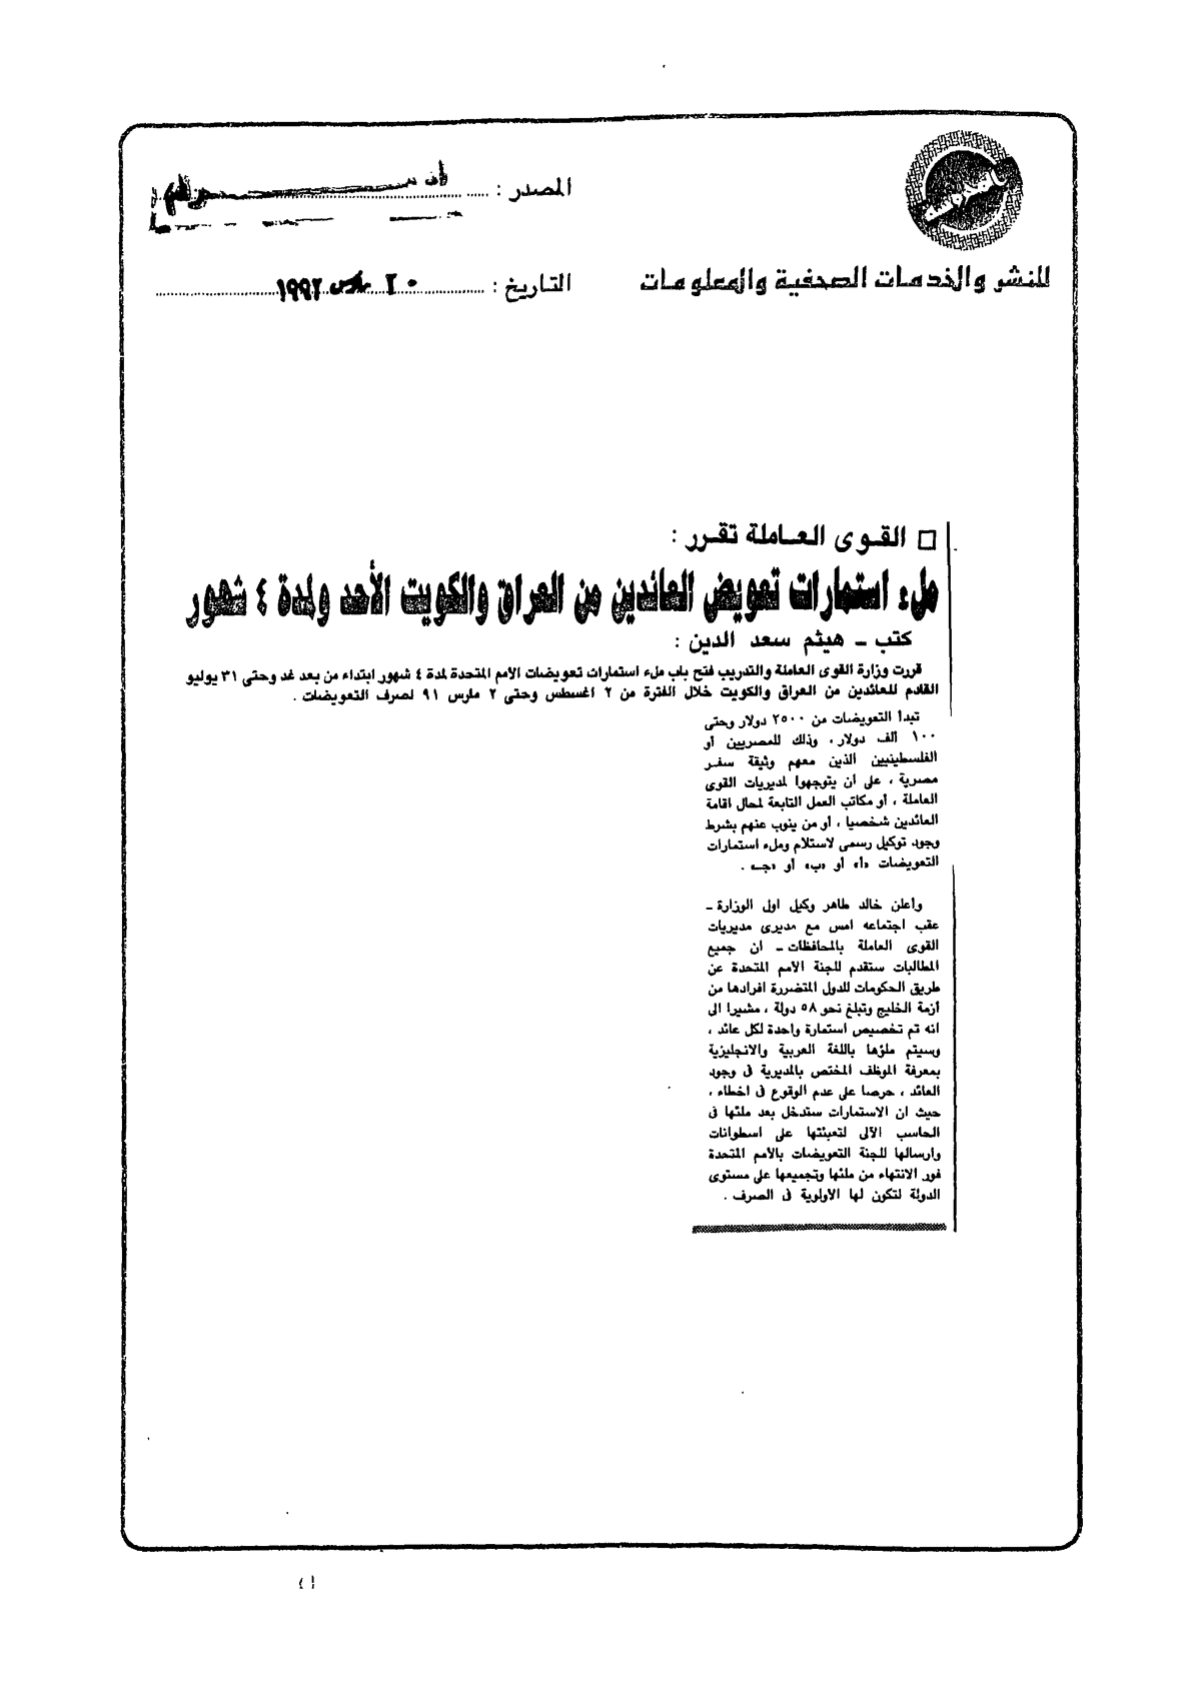 المصدر :
للنشر والخدمات الصحفية والمعلومات
التاريخ : ٢٠ مارس ١٩٩٢
□ القوى العاملة تقرر :
ملء استمارات تعويض العائدين من العراق والكويت الأحد ولمدة ٤ شهور
كتب ـ هيثم سعد الدين :
قررت وزارة القوى العاملة والتدريب فتح باب ملء استمارات تعويضات الأمم المتحدة لمدة ٤ شهور ابتداء من بعد غد وحتى ٣١ يوليو
القادم للعائدين من العراق والكويت خلال الفترة من ٢ اغسطس وحتى ٢ مارس ٩١ لصرف التعويضات .
تبدأ التعويضات من ٢٥٠٠ دولار وحتى
١٠٠ ألف دولار ، وذلك للمصريين أو
الفلسطينيين الذين معهم وثيقة سفر
مصرية ، على ان يتوجهوا لمديريات القوى
العاملة ، أو مكاتب العمل التابعة لمحال اقامة
العائدين شخصيا ، أو من ينوب عنهم بشرط
وجود توكيل رسمى لاستلام وملء استمارات
التعويضات «أ» أو «ب» أو «جـ» .
وأعلن خالد طاهر وكيل اول الوزارة ـ
عقب اجتماعه امس مع مديرى مديريات
القوى العاملة بالمحافظات ـ ان جميع
المطالبات ستقدم للجنة الأمم المتحدة عن
طريق الحكومات للدول المتضررة افرادها من
أزمة الخليج وتبلغ نحو ٥٨ دولة ، مشيرا الى
انه تم تخصيص استمارة واحدة لكل عائد ،
وسيتم ملؤها باللغة العربية والانجليزية
بمعرفة الموظف المختص بالمديرية فى وجود
العائد ، حرصا على عدم الوقوع فى اخطاء ،
حيث ان الاستمارات ستدخل بعد ملئها فى
الحاسب الآلى لتعبئتها على اسطوانات
وارسالها للجنة التعويضات بالأمم المتحدة
فور الانتهاء من ملئها وتجميعها على مستوى
الدولة لتكون لها الأولوية فى الصرف .